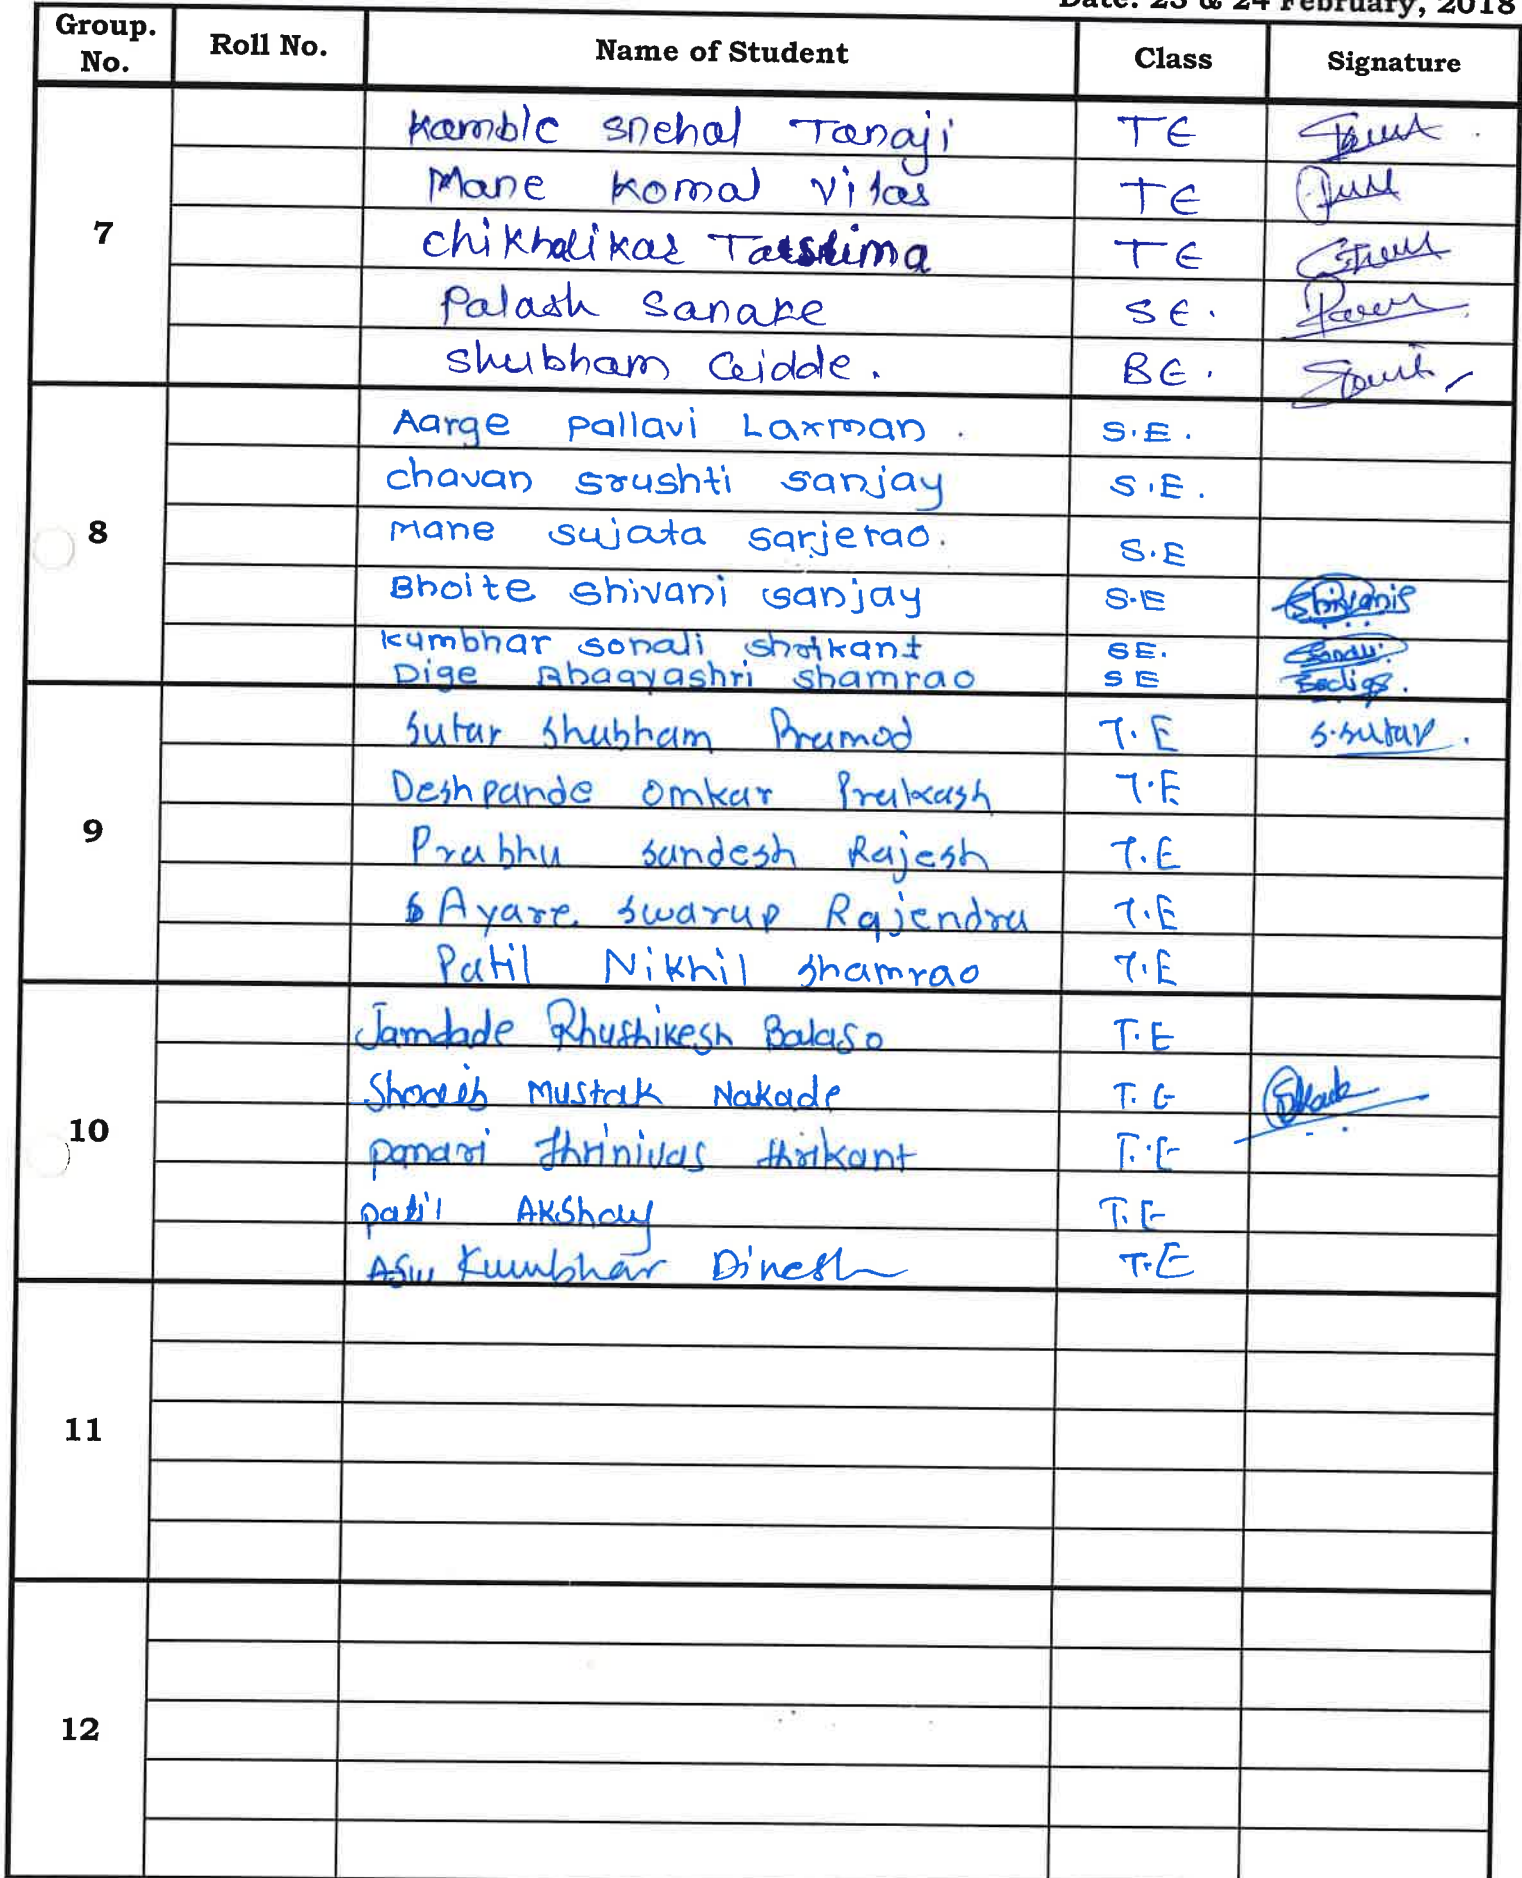 Date: 23 & 24 February, 2018
Group. No. Roll No. Name of Student Class Signature
7
Kamble Snehal Tanaji TE
Mane Komal Vilas TE
Chikhalikar TE
Palash Sanake SE.
Shubham BE.
8
Aarge Pallavi Laxman . S.E.
chavan Srushti Sanjay S.E.
Mane Sujata Sarjerao. S.E
Bhoite Shivani Sanjay S.E Shivanis
Kumbhar Sonali Shrikant SE.
Dige Bhagyashri Shamrao SE
9
Sutar Shubham Pramod T.E S.Sutar.
Deshpande Omkar Prakash T.E
Prabhu Sandesh Rajesh T.E
Ayare Swarup Rajendra T.E
Patil Nikhil Shamrao T.E
10
Jamdade Rhushikesh Balaso T.E
Mustak Nakade T.E
Shrinivas Shrikant T.E
Patil Akshay T.E
Kumbhar Dinesh T.E
11
12